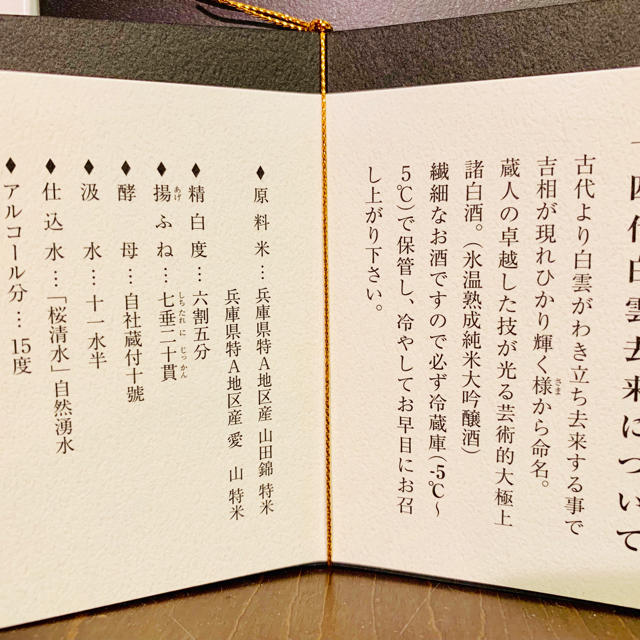 十四代白雲去来について
古代より白雲がわき立ち去来する事で
吉相が現れひかり輝く様さまから命名。
蔵人の卓越した技が光る芸術的大極上
諸白酒。(氷温熟成純米大吟醸酒)
繊細なお酒ですので必ず冷蔵庫(-5℃〜
5℃)で保管し、冷やしてお早目にお召
し上がり下さい。
♦原料米…兵庫県特A地区産 山田錦 特米
兵庫県特A地区産 愛 山 特米
♦精白度…六割五分
♦揚あげふね…七垂二十貫しちたれ に じっかん
♦酵 母…自社蔵付十號
♦汲 水…十一水半
♦仕込水…「桜清水」自然湧水
♦アルコール分…15度